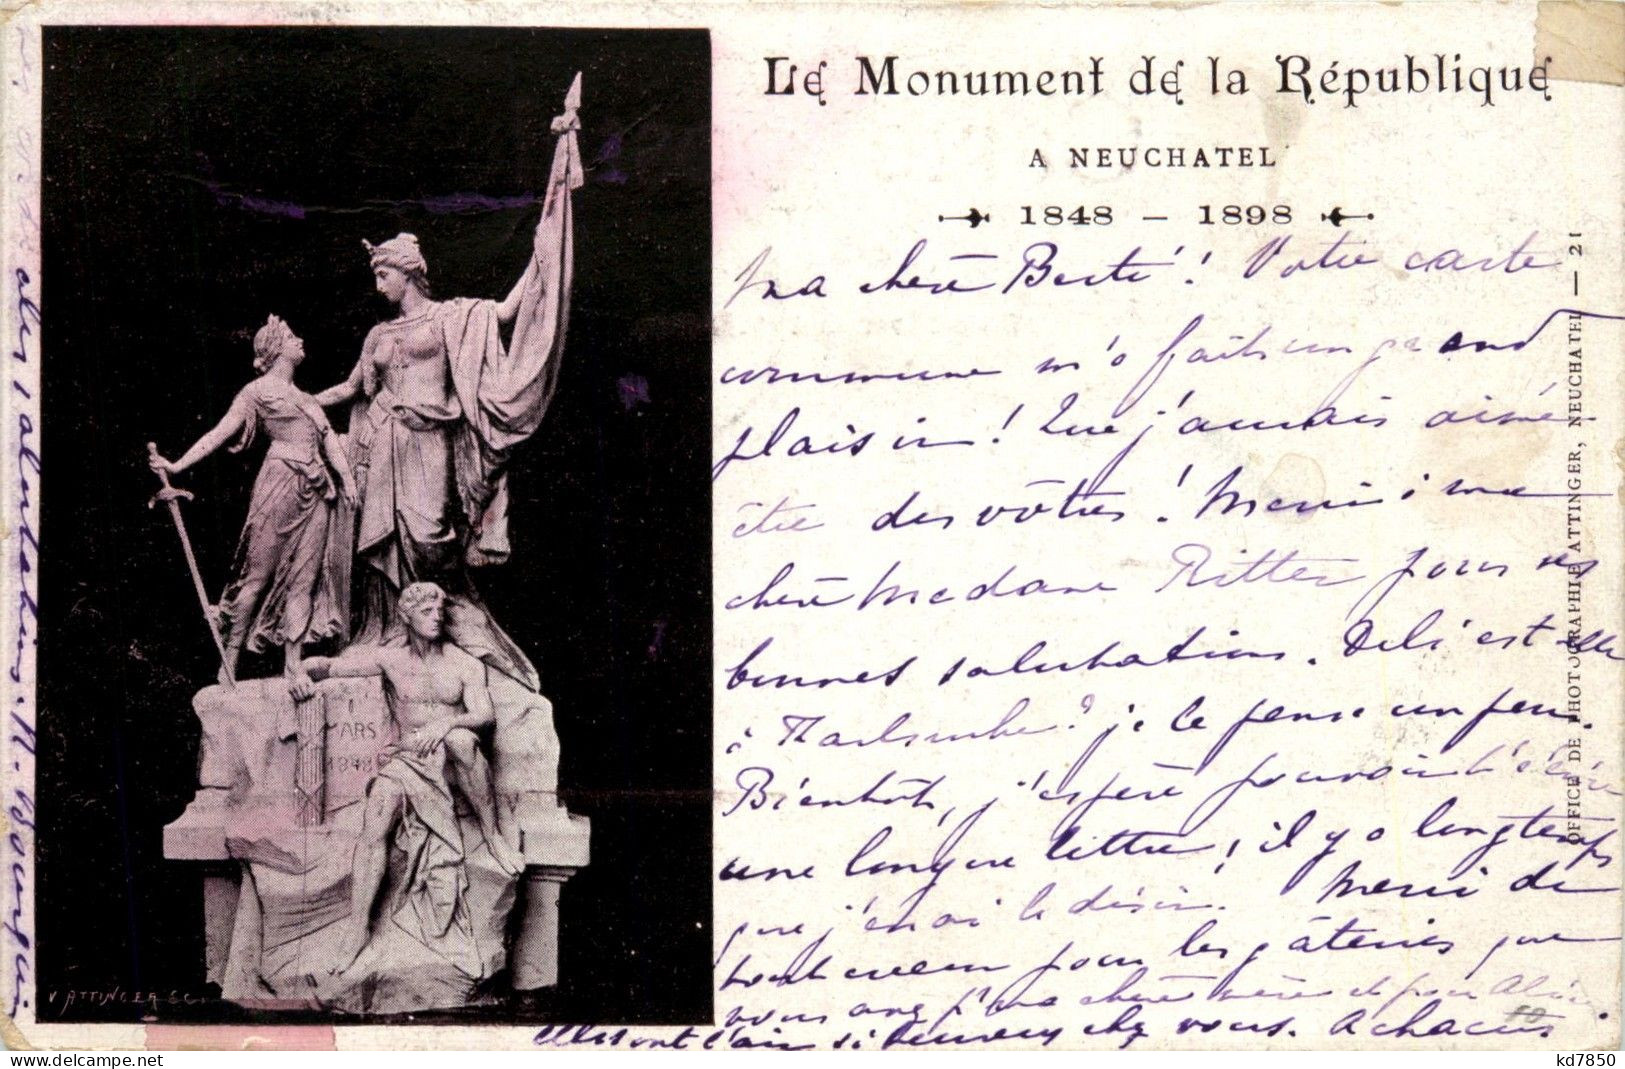 Le Monument de la République
A NEUCHATEL
1848 – 1898
Ma chère Berte! Votre carte
commune m'a fait un grand
plaisir! Que j'aurais aimé
être des vôtres! Merci à ma
chère Madame Ritter pour ses
bonnes salutations. Deli est elle
à Karlsruhe? je le pense un peu.
Bientôt, j'espère pouvoir t'écrire
une longue lettre, il y a longtemps
que j'en ai le désir. Merci de
tout cœur pour les gâteries que
vous avez p. ma chère mère et pour
Elles ont l'air si heureuses chez vous. A chacun
des salutations. M. Bourquin
OFFICE DE PHOTOGRAPHIE ATTINGER, NEUCHATEL — 21
1 MARS 1848
V. ATTINGER SC.
kd7850